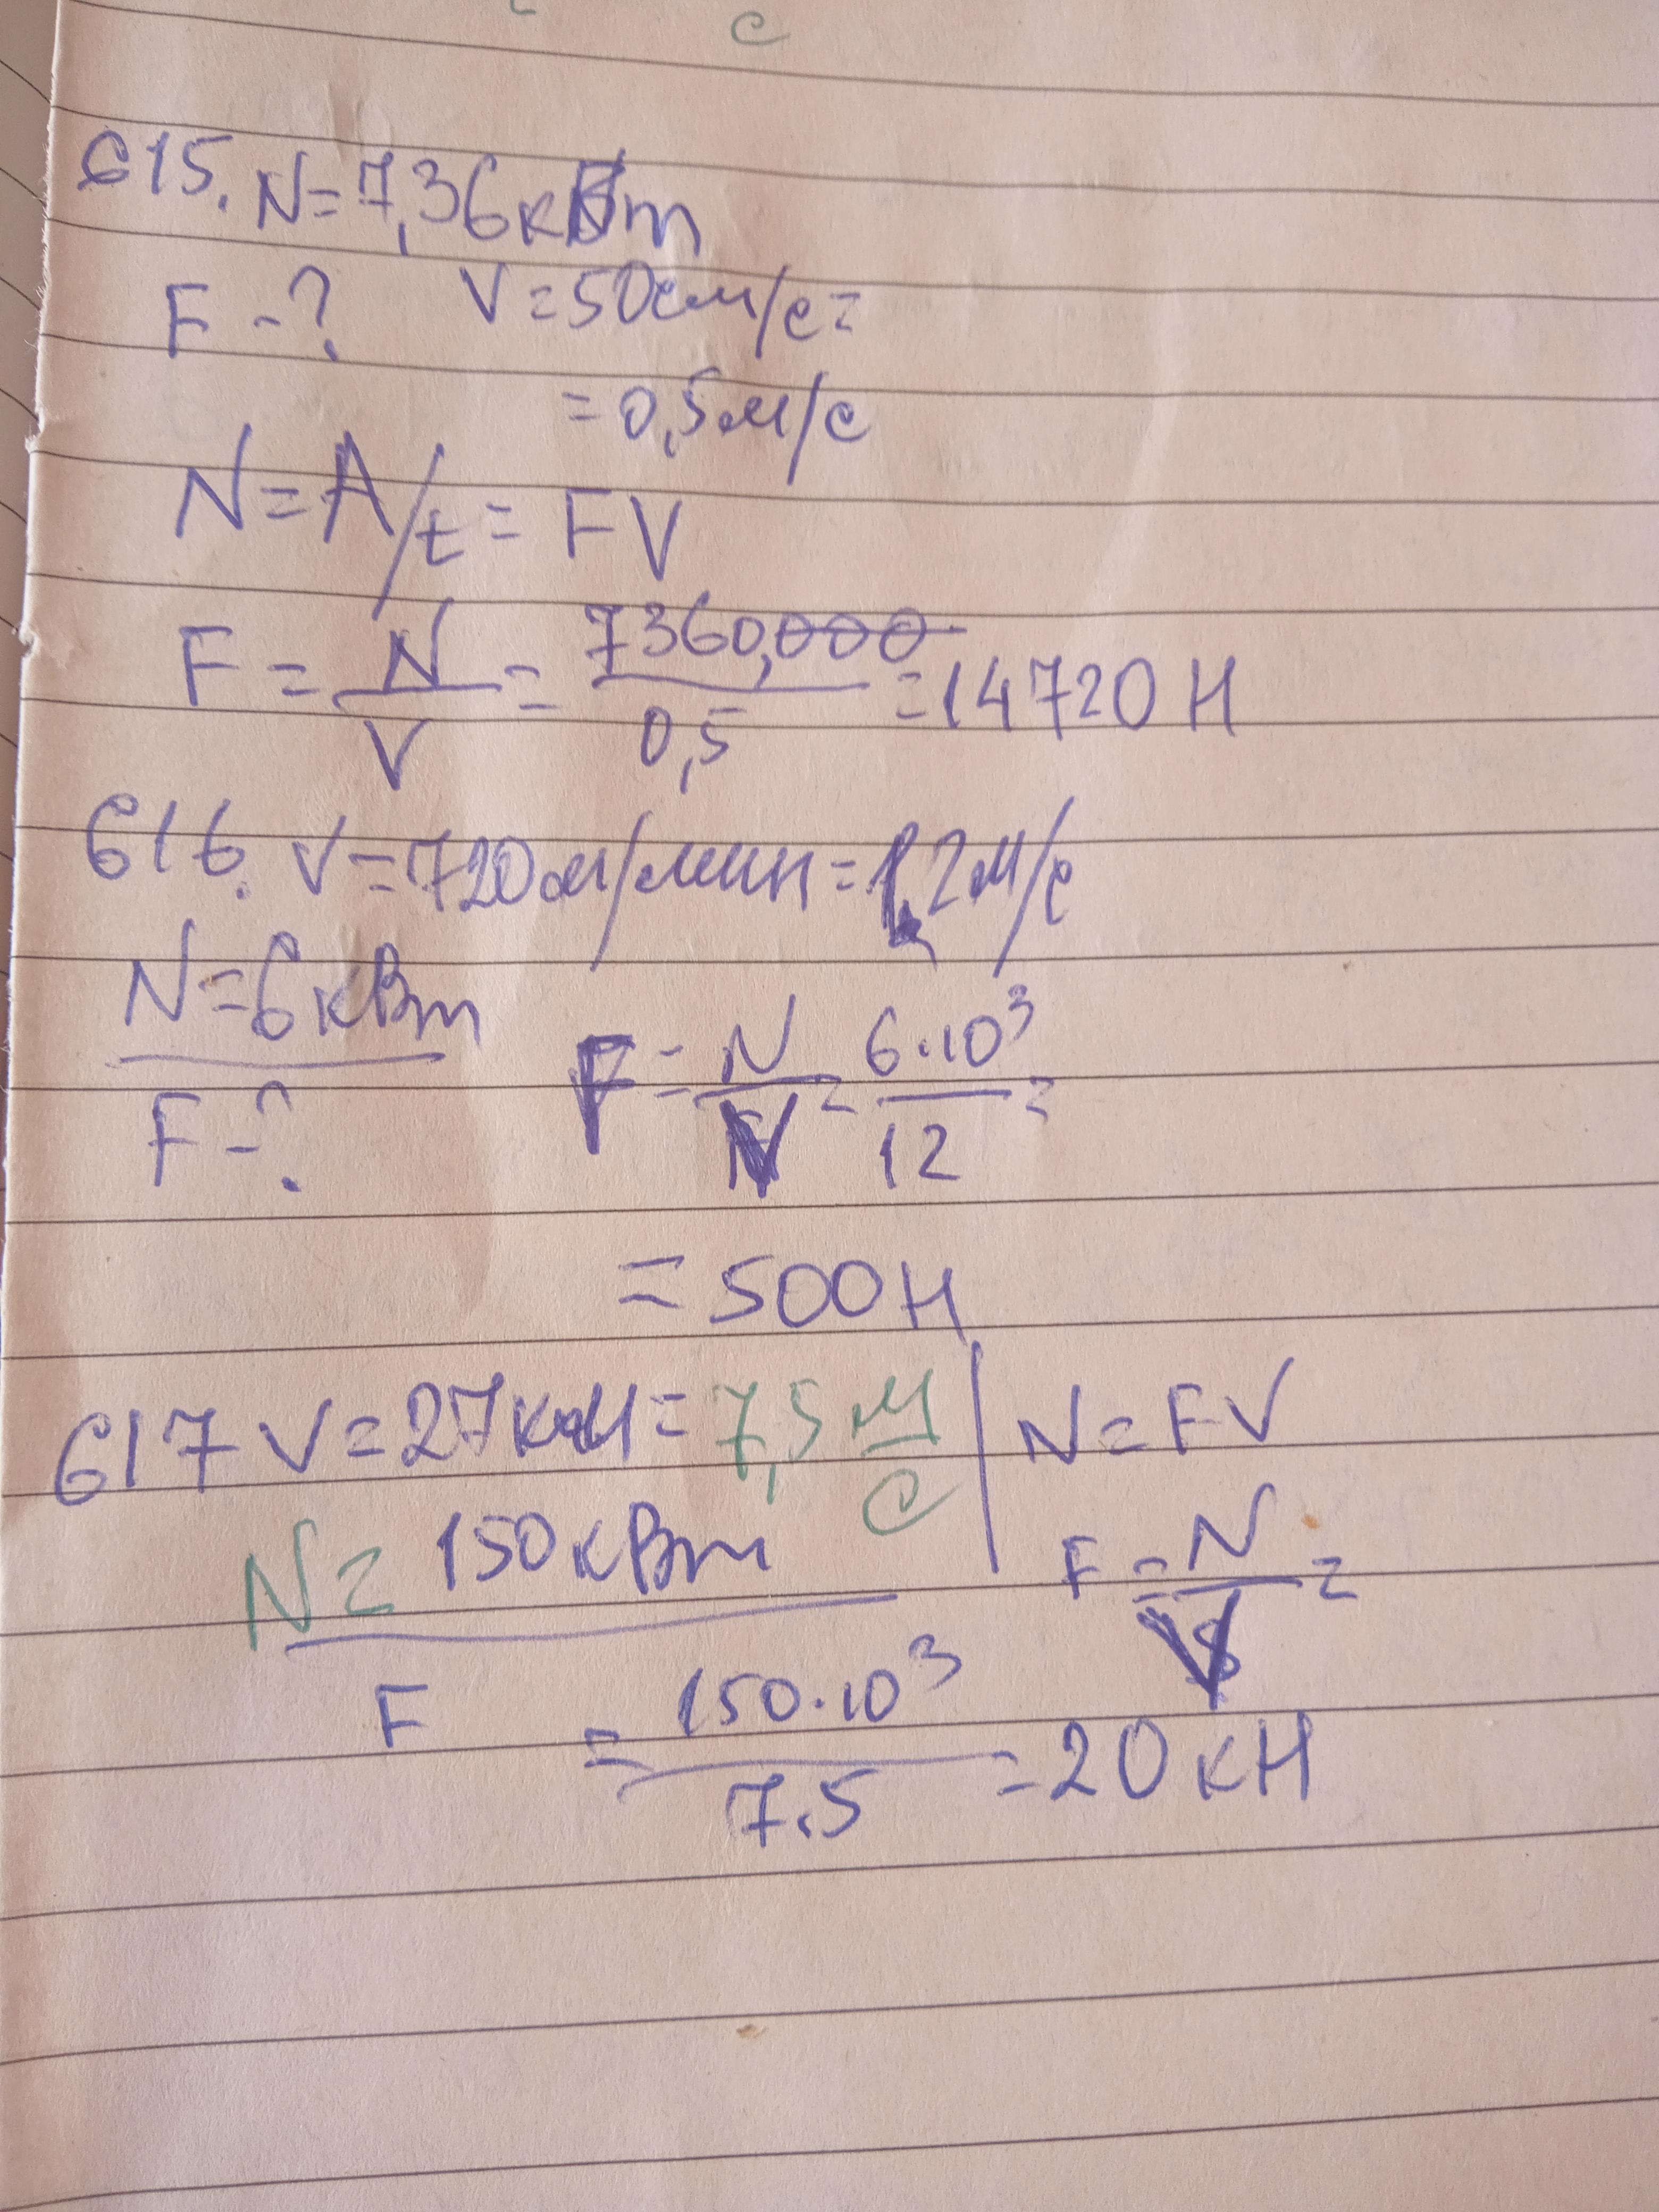 с
615. N=7,36кВт
F-? V=50см/с=
=0,5м/с
N=A/t=FV
F=N/V=7360,000/0,5=14720 Н
616. V=720м/мин=12м/с
N=6кВт
F-? F=N/V=6·10³/12=
=500Н
617 V=27км=7,5м/с | N=FV
N=150кВт F=N/V=
F =150·10³/7.5=20кН